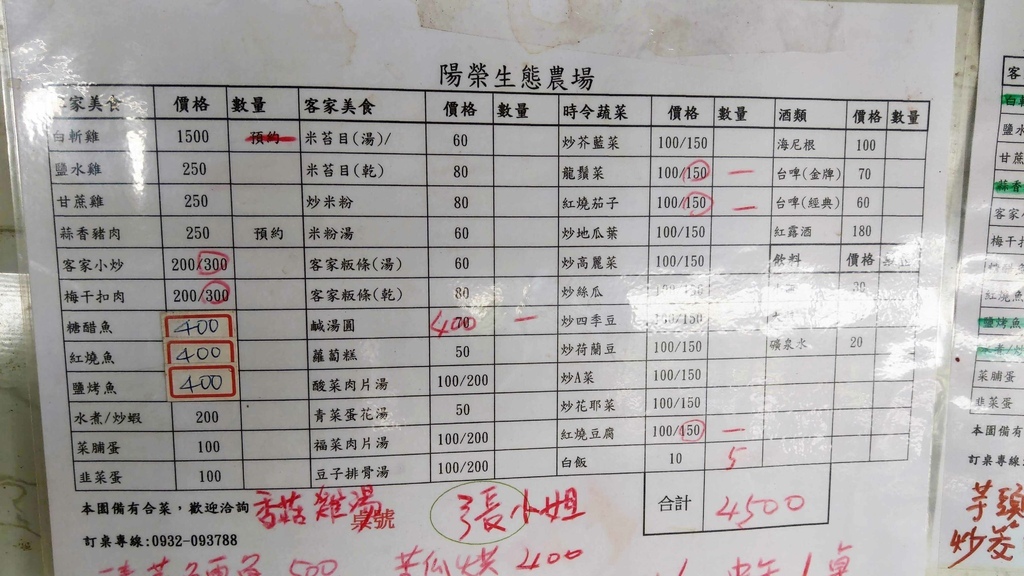 陽榮生態農場
客家美食 價格 數量 客家美食 價格 數量 時令蔬菜 價格 數量 酒類 價格 數量
白斬雞 1500 預約 米苔目(湯)/ 60 炒芥藍菜 100/150 海尼根 100
鹽水雞 250 米苔目(乾) 80 龍鬚菜 100/150 一 台啤(金牌) 70
甘蔗雞 250 炒米粉 80 紅燒茄子 100/150 一 台啤(經典) 60
蒜香豬肉 250 預約 米粉湯 60 炒地瓜葉 100/150 紅露酒 180
客家小炒 200/300 客家粄條(湯) 60 炒高麗菜 100/150 飲料 價格
梅干扣肉 200/300 客家粄條(乾) 80 炒絲瓜
糖醋魚 400 鹹湯圓 400 一 炒四季豆 100/150
紅燒魚 400 蘿蔔糕 50 炒荷蘭豆 100/150 礦泉水 20
鹽烤魚 400 酸菜肉片湯 100/200 炒A菜 100/150
水煮/炒蝦 200 青菜蛋花湯 50 炒花耶菜 100/150
菜脯蛋 100 福菜肉片湯 100/200 紅燒豆腐 100/150 一
韭菜蛋 100 豆子排骨湯 100/200 白飯 10 5
本園備有合菜,歡迎洽詢 香菇雞湯 桌號 張小姐 合計 4500
訂桌專線:0932-093788
500 400
芋頭